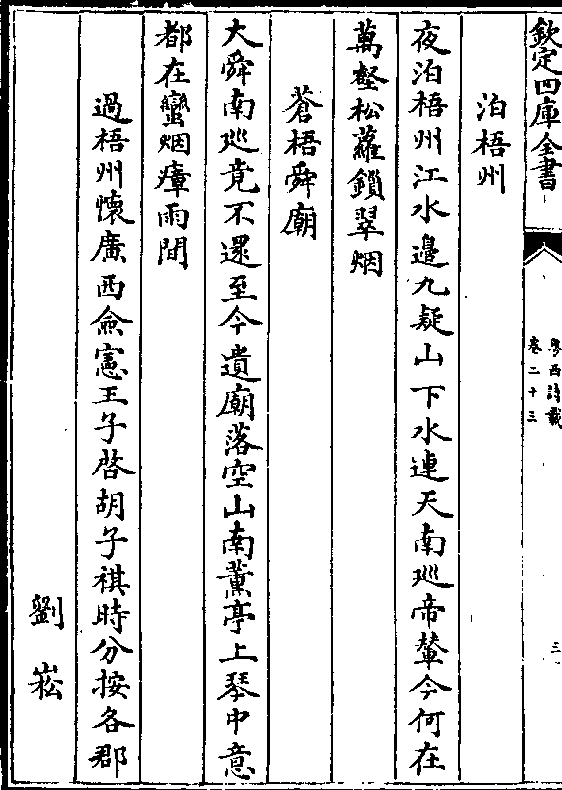 欽定四庫全書
粵西詩載
卷二十三
三
泊梧州
夜泊梧州江水邊九疑山下水連天南巡帝輦今何在
萬壑松蘿鎖翠烟
蒼梧舜廟
大舜南巡竟不還至今遺廟落空山南薰亭上琴中意
都在蠻烟瘴雨間
過梧州懷廣西僉憲王子啓胡子祺時分按各郡
劉崧